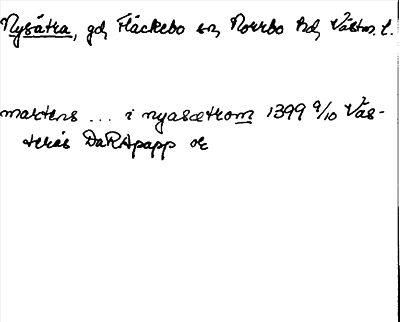 Nysätra, gd, Fläckebo sn, Norrbo hd, Västm. l.
martens ... i nyasætrom 1399 9/10 Väs-
terås DaRApapp or